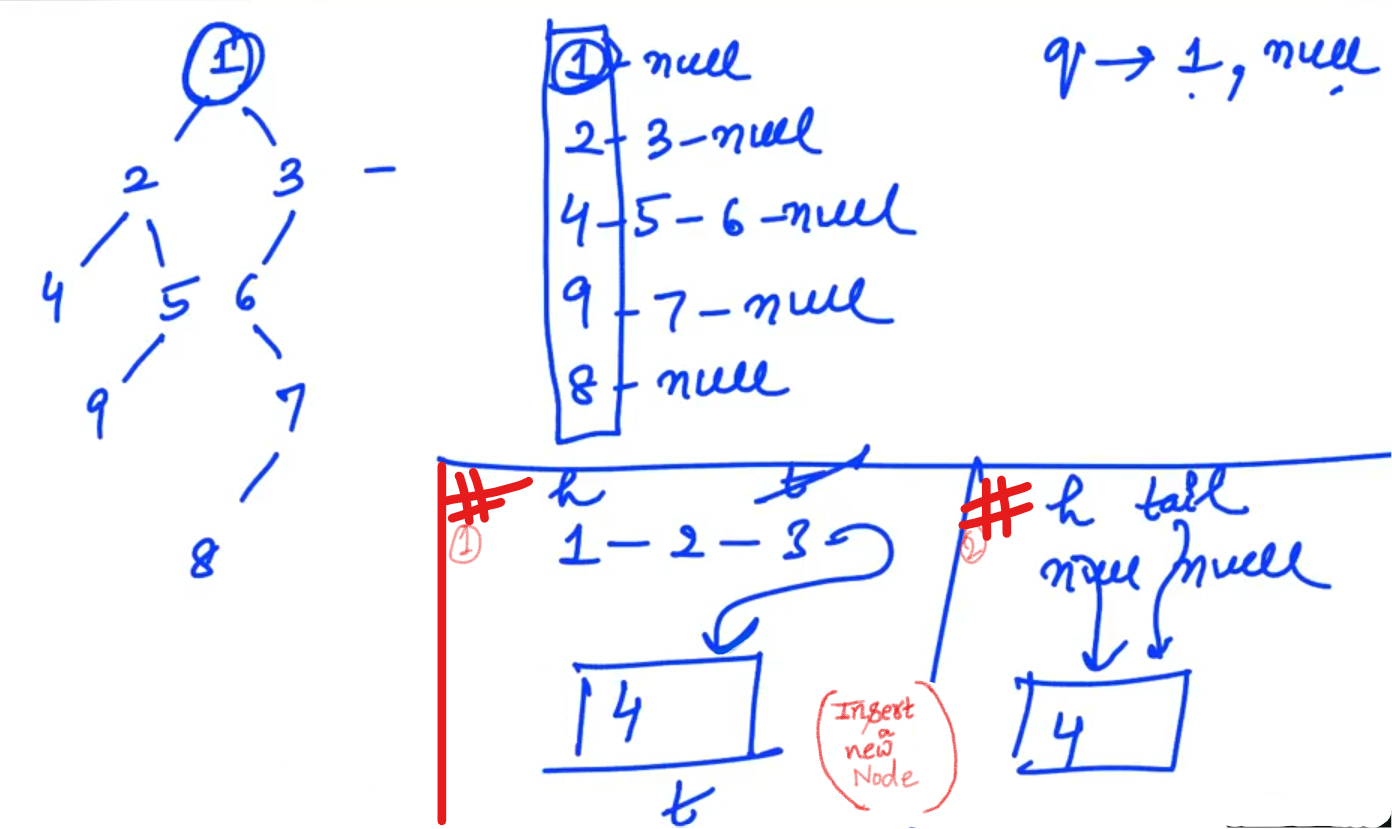 1
2 3 –
4 5 6
9 7
8
1 - null
2 - 3 - null
4 - 5 - 6 - null
9 - 7 - null
8 - null
q → 1, null
# h t
① 1 - 2 - 3
4
t
(Insert
a
new
Node)
# h tail
② null null
4